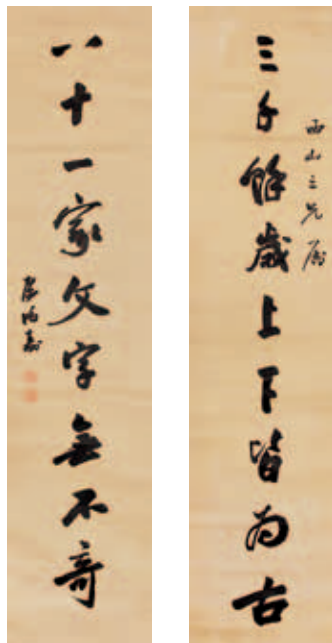 三千餘歲上下皆為古
雨山仁兄屬
八十一家文字無不奇